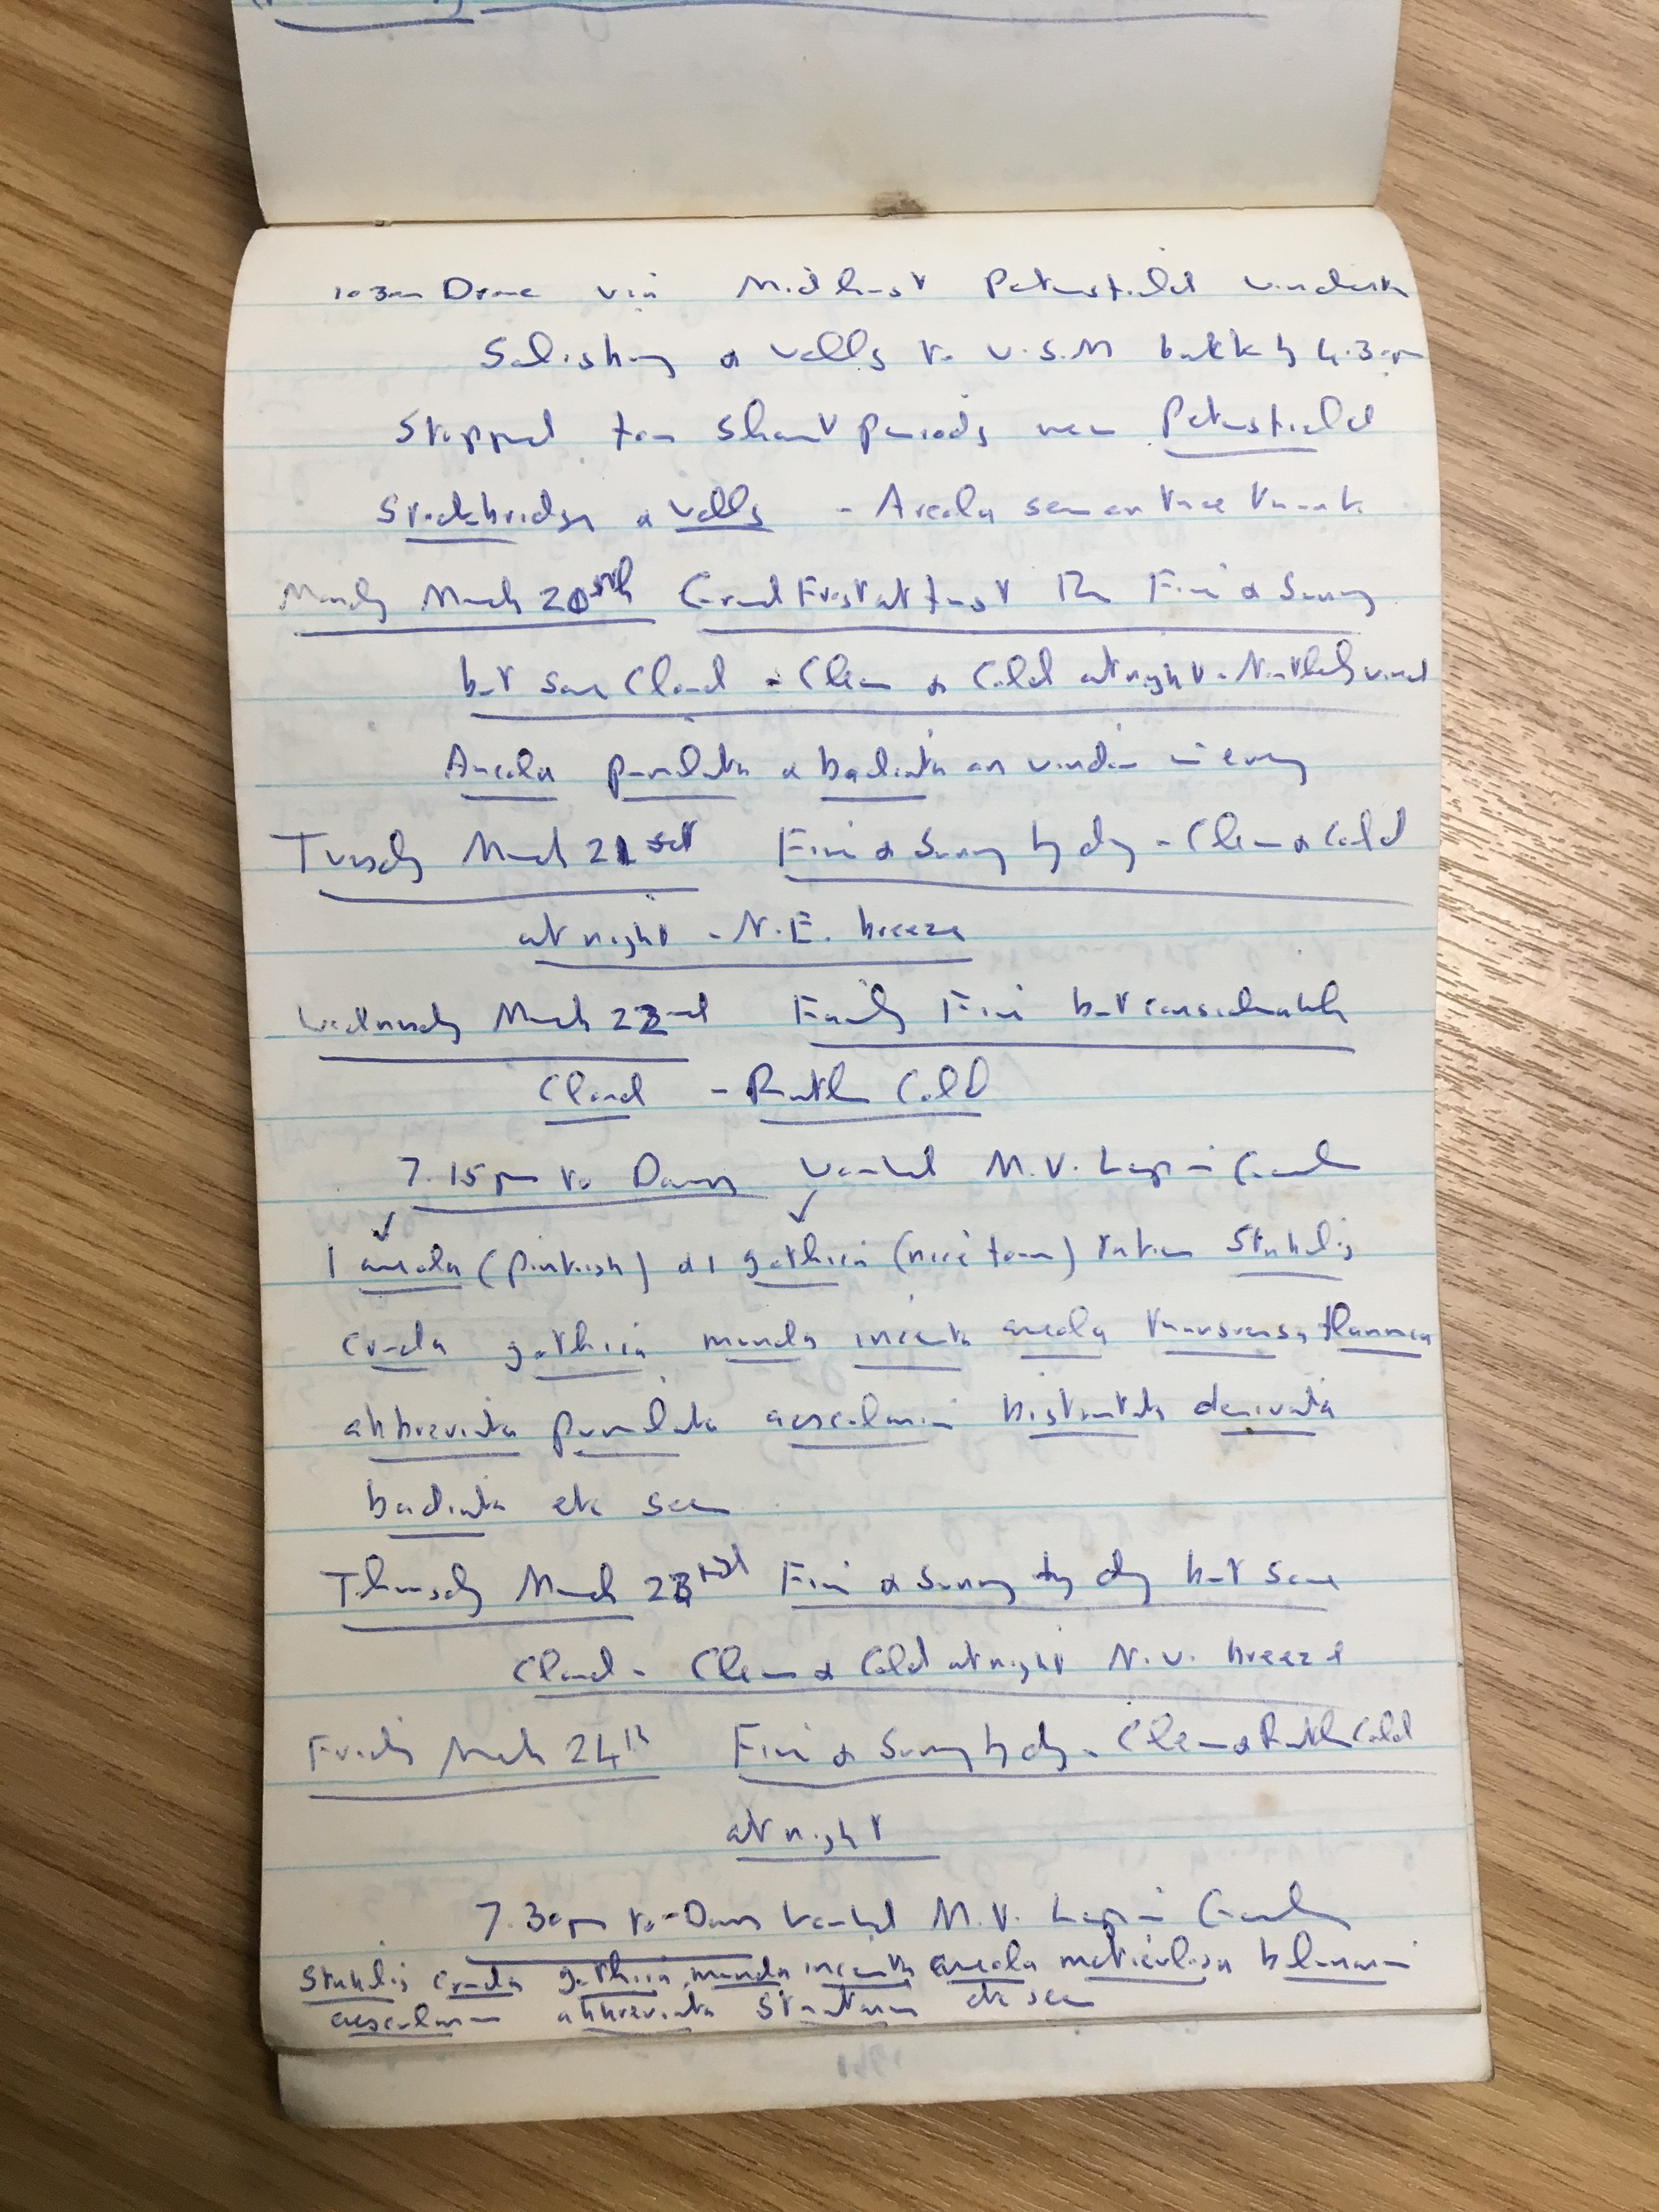 10.30am Drove via Midhurst Petersfield Winchester
Salisbury & Wells to W.S.M back by 4.30pm
Stopped for short periods near Petersfield
Stockbridge & Wells - Areola seen on tree trunk
Monday March 20th Ground Frost at first Fine & Sunny
but some Cloud - Clear & Cold at night - Northerly wind
Areola parallela & badiata on window in evening
Tuesday March 21st Fine & Sunny by day - Clear & Cold
at night - N.E. breeze
Wednesday March 22nd Fairly Fine but considerable
Cloud - Rather Cold
7.15pm to Downs worked M.V. Lamp in
1 areola (pinkish) & 1 gothica (nice form) taken Stabilis
cruda gothica munda incerta areola transversa flammea
abbreviata aescularia bistortata derivata
badiata etc seen
Thursday March 23rd Fine & Sunny by day but some
Cloud - Clear & Cold at night N.W. breeze
Friday March 24th Fine & Sunny by day - Clear & Rather Cold
at night
7.30pm to Downs worked M.V. Lamp in
Stabilis cruda gothica munda incerta areola meticulosa
aescularia abbreviata etc seen